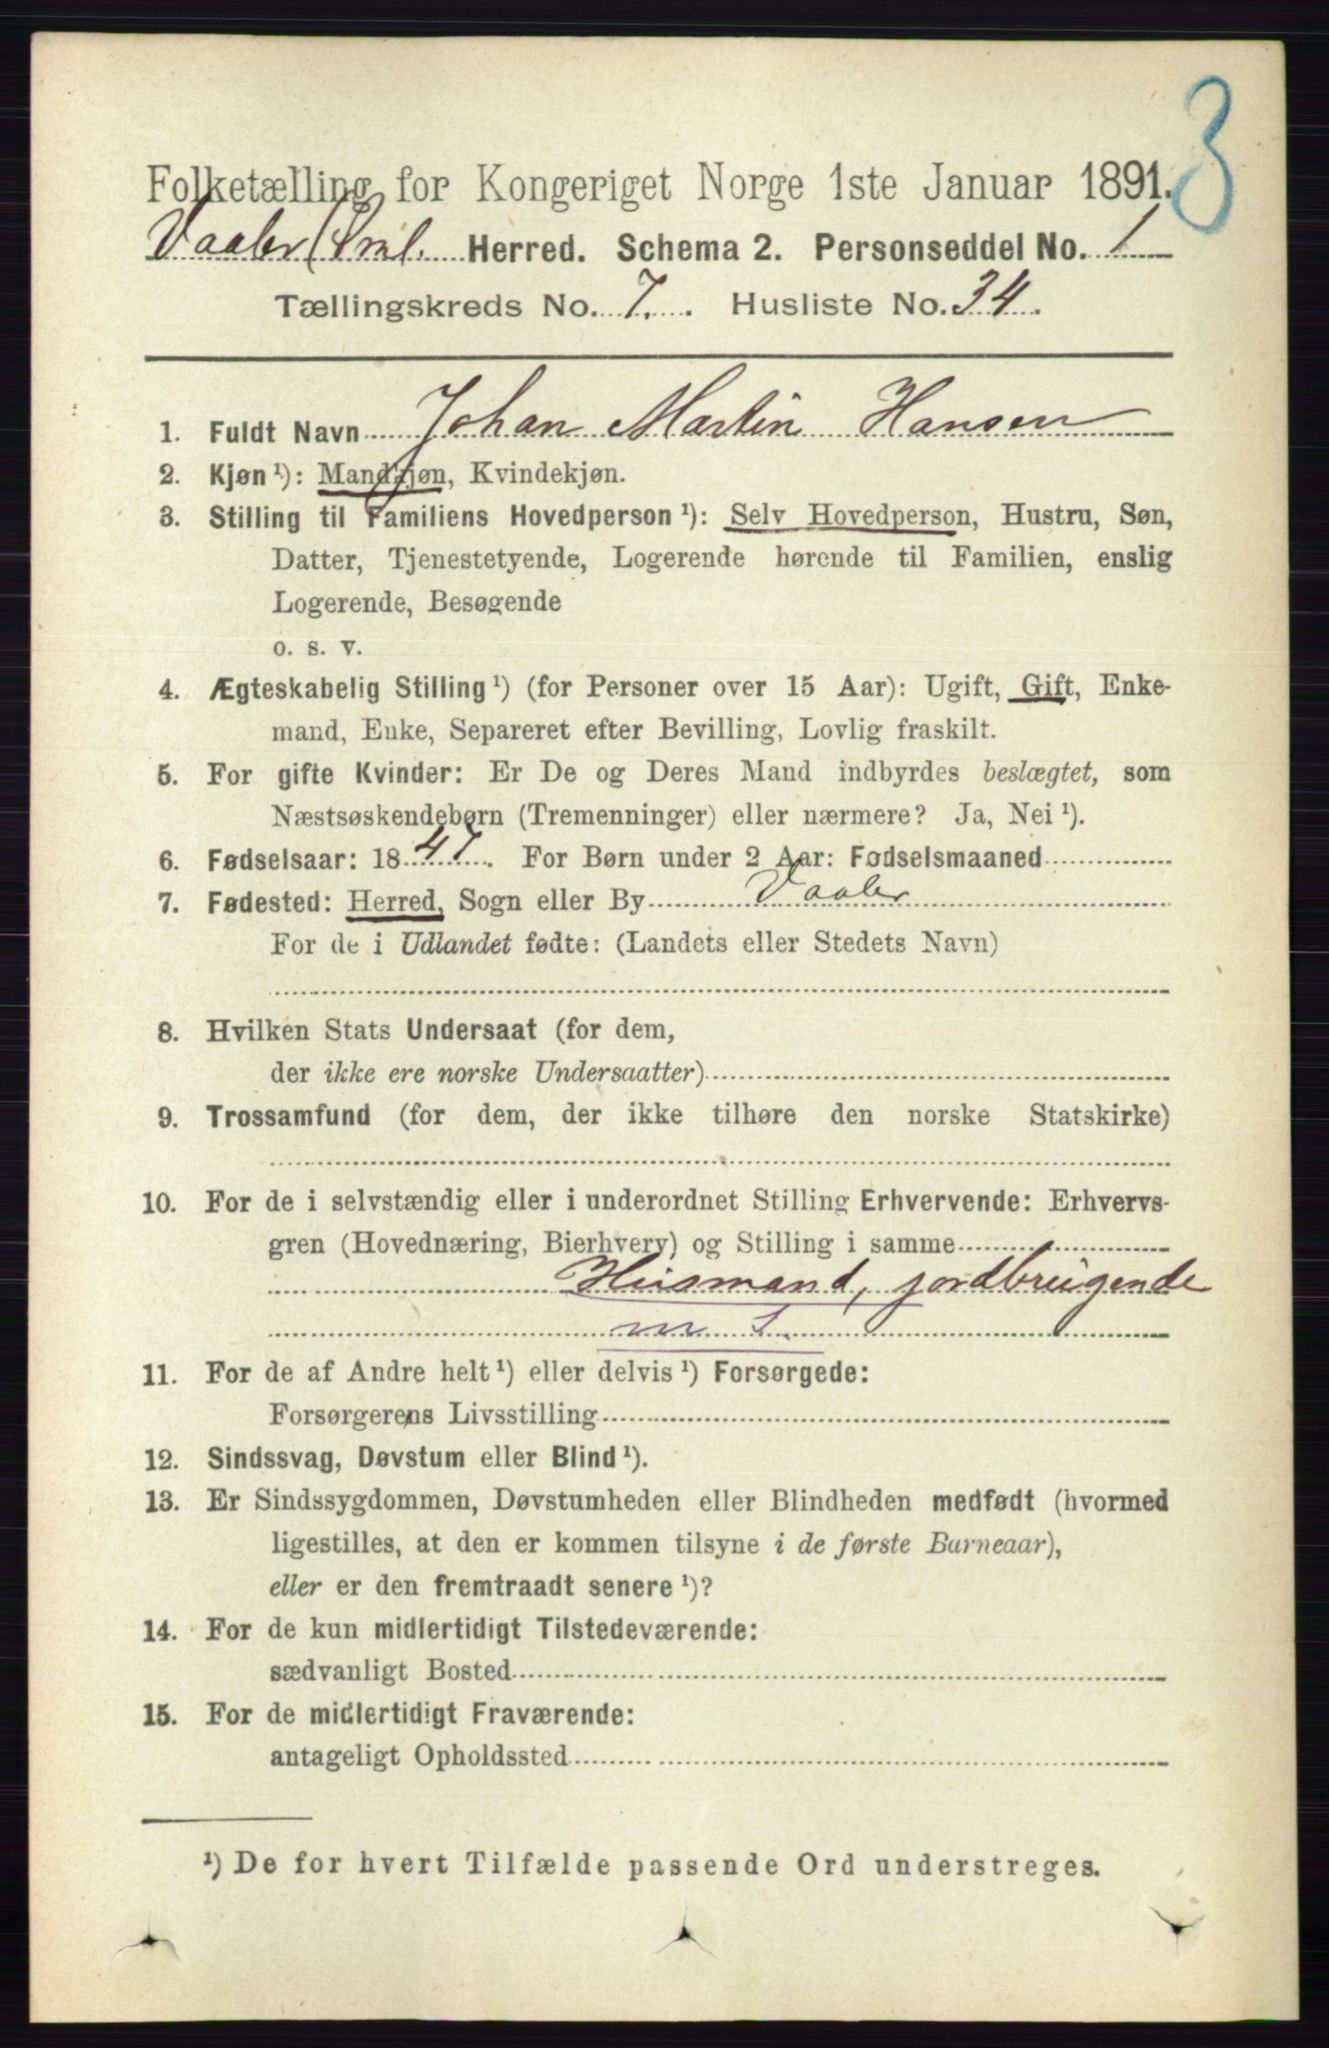 3
Folketælling for Kongeriget Norge 1ste Januar 1891.
Vaaler (Sml. Herred. Schema 2. Personseddel No. 1
Tællingskreds No. 7. Husliste No. 34.
1. Fuldt Navn Johan Martin Hansen
2. Kjøn ¹): Mandkjøn, Kvindekjøn.
3. Stilling til Familiens Hovedperson ¹): Selv Hovedperson, Hustru, Søn,
Datter, Tjenestetyende, Logerende hørende til Familien, enslig
Logerende, Besøgende
o. s. v.
4. Ægteskabelig Stilling ¹) (for Personer over 15 Aar): Ugift, Gift, Enke-
mand, Enke, Separeret efter Bevilling, Lovlig fraskilt.
5. For gifte Kvinder: Er De og Deres Mand indbyrdes beslægtet, som
Næstsøskendebørn (Tremenninger) eller nærmere? Ja, Nei ¹).
6. Fødselsaar: 1847. For Børn under 2 Aar: Fødselsmaaned
7. Fødested: Herred, Sogn eller By Vaaler
For de i Udlandet fødte: (Landets eller Stedets Navn)
8. Hvilken Stats Undersaat (for dem,
der ikke ere norske Undersaatter)
9. Trossamfund (for dem, der ikke tilhøre den norske Statskirke)
10. For de i selvstændig eller i underordnet Stilling Erhvervende: Erhvervs-
gren (Hovednæring, Bierhverv) og Stilling i samme
Husmand, jordbrugende
m J.
11. For de af Andre helt ¹) eller delvis ¹) Forsørgede:
Forsørgerens Livsstilling
12. Sindssvag, Døvstum eller Blind ¹).
13. Er Sindssygdommen, Døvstumheden eller Blindheden medfødt (hvormed
ligestilles, at den er kommen tilsyne i de første Barneaar),
eller er den fremtraadt senere ¹)?
14. For de kun midlertidigt Tilstedeværende:
sædvanligt Bosted
15. For de midlertidigt Fraværende:
antageligt Opholdssted
¹) De for hvert Tilfælde passende Ord understreges.